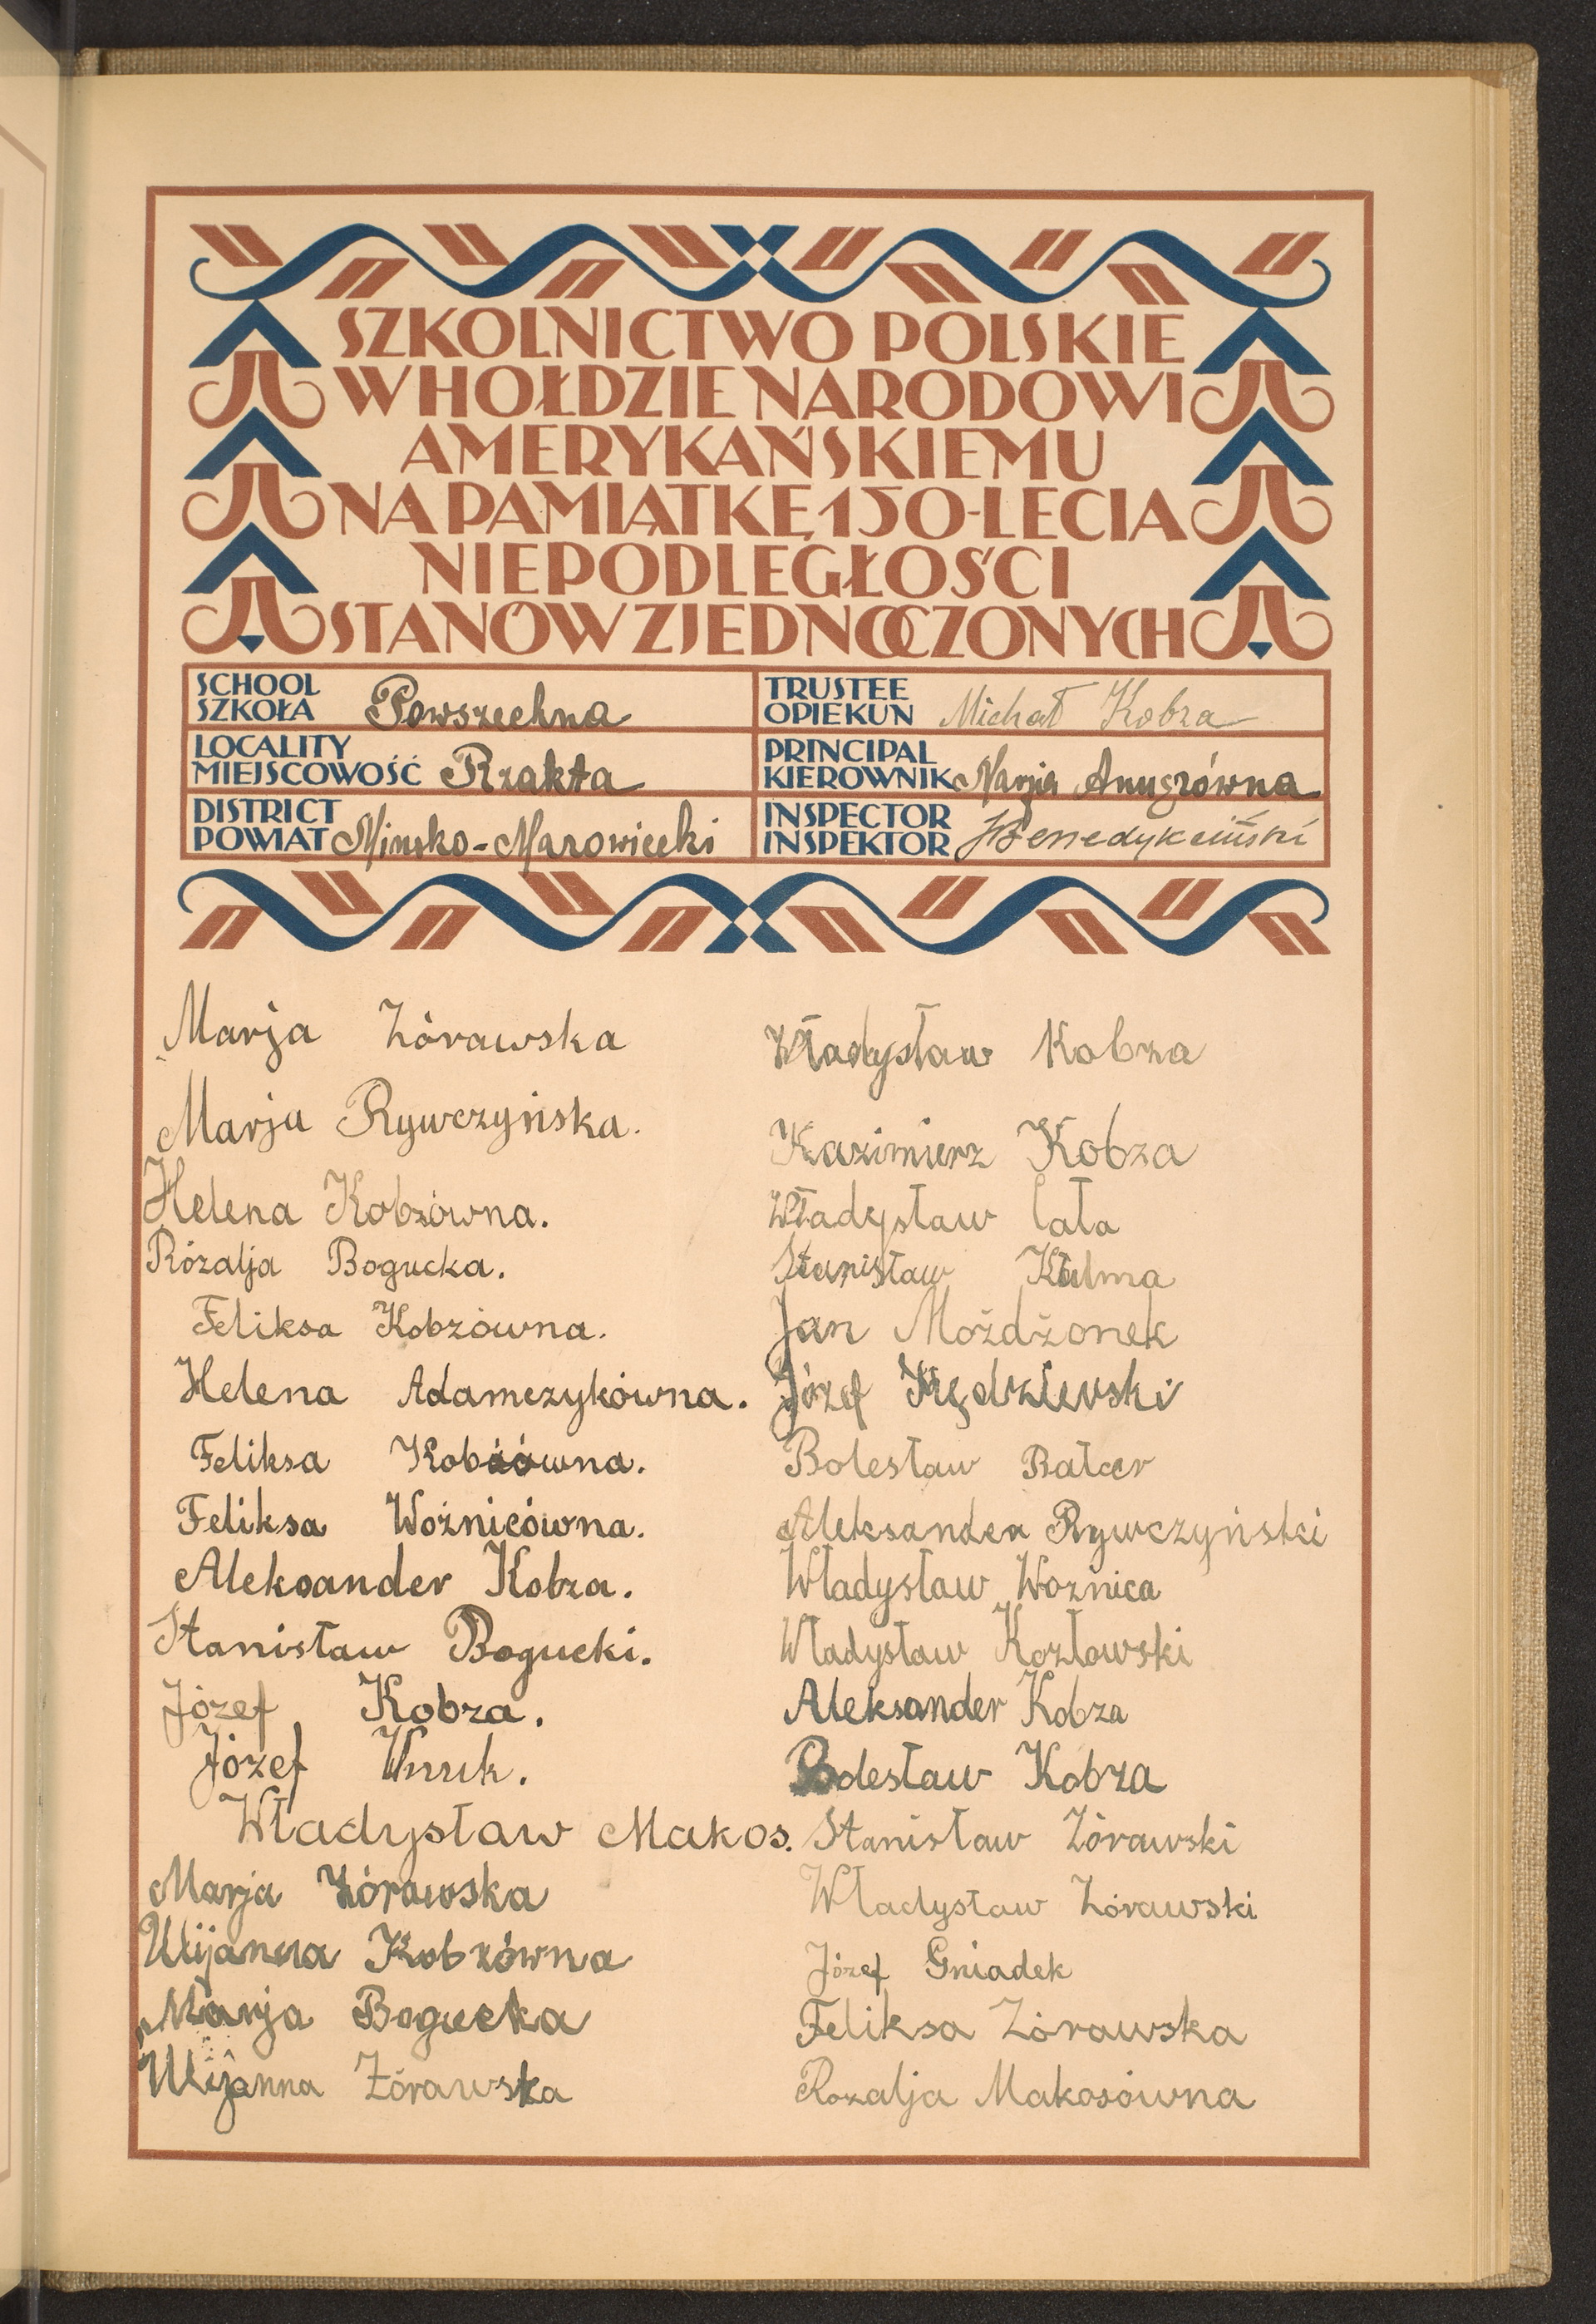 SZKOLNICTWO POLSKIE
W HOŁDZIE NARODOWI
AMERYKAŃSKIEMU
NA PAMIĄTKĘ 150-LECIA
NIEPODLEGŁOŚCI
STANÓW ZJEDNOCZONYCH
SCHOOL
SZKOŁA Powszechna
TRUSTEE
OPIEKUN Michał Kobza
LOCALITY
MIEJSCOWOŚĆ Rzakta
PRINCIPAL
KIEROWNIK Marja
DISTRICT
POWIAT Minsko-Mazowiecki
INSPECTOR
INSPEKTOR
Marja Żórawska
Marja Rywczyńska.
Helena Kobzówna.
Rózalja Bogucka.
Feliksa Kobzówna.
Helena Adamczykówna.
Feliksa Kobzówna.
Feliksa Woźnicówna.
Aleksander Kobza.
Stanisław Bogucki.
Józef Kobza.
Józef Wnuk.
Władysław Makos.
Marja Żórawska
Kobzówna
Marja Bogucka
Żórawska
Władysław Kobza
Kazimierz Kobza
Władysław Cała
Stanisław Kulma
Jan Możdżonek
Józef Kędzierski
Bolesław Balcer
Aleksander Rywczyński
Władysław Woźnica
Władysław Kozłowski
Aleksander Kobza
Bolesław Kobza
Stanisław Żórawski
Władysław Żórawski
Józef Gniadek
Feliksa Żórawska
Rozalja Makosówna